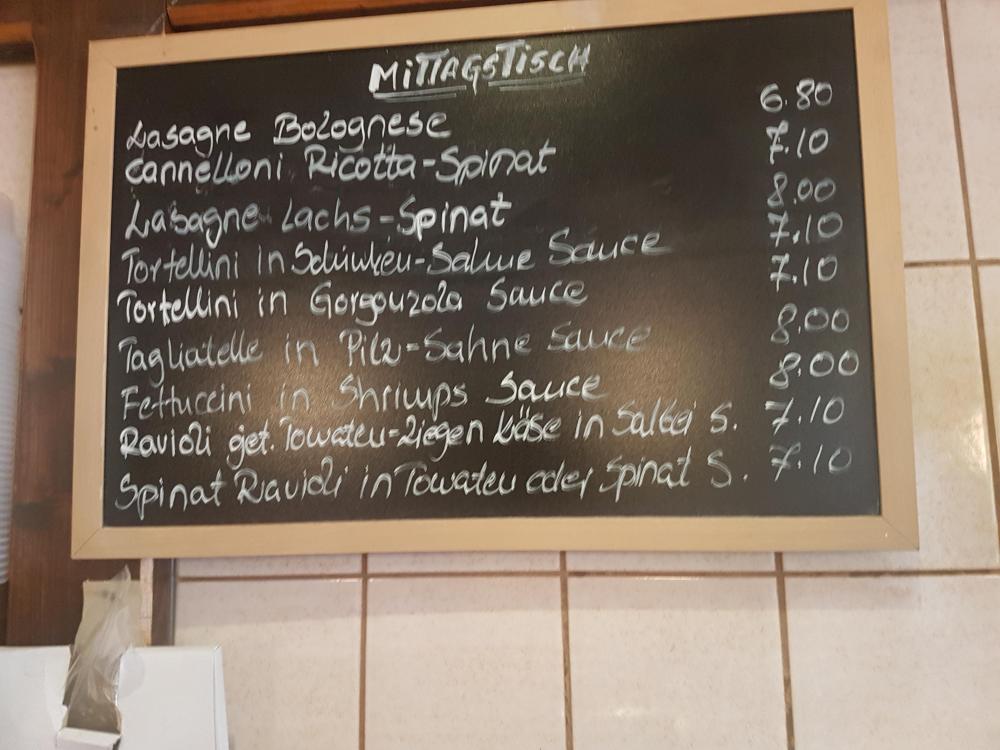 MITTAGSTISCH
Lasagne Bolognese 6.80
Cannelloni Ricotta-Spinat 7.10
Lasagne Lachs-Spinat 8.00
Tortellini in Schinken-Sahne Sauce 7.10
Tortellini in Gorgonzola Sauce 7.10
Tagliatelle in Pilz-Sahne Sauce 8.00
Fettuccini in Shrimps Sauce 8.00
Ravioli get. Tomaten-Ziegen käse in Salbei S. 7.10
Spinat Ravioli in Tomaten oder Spinat S. 7.10